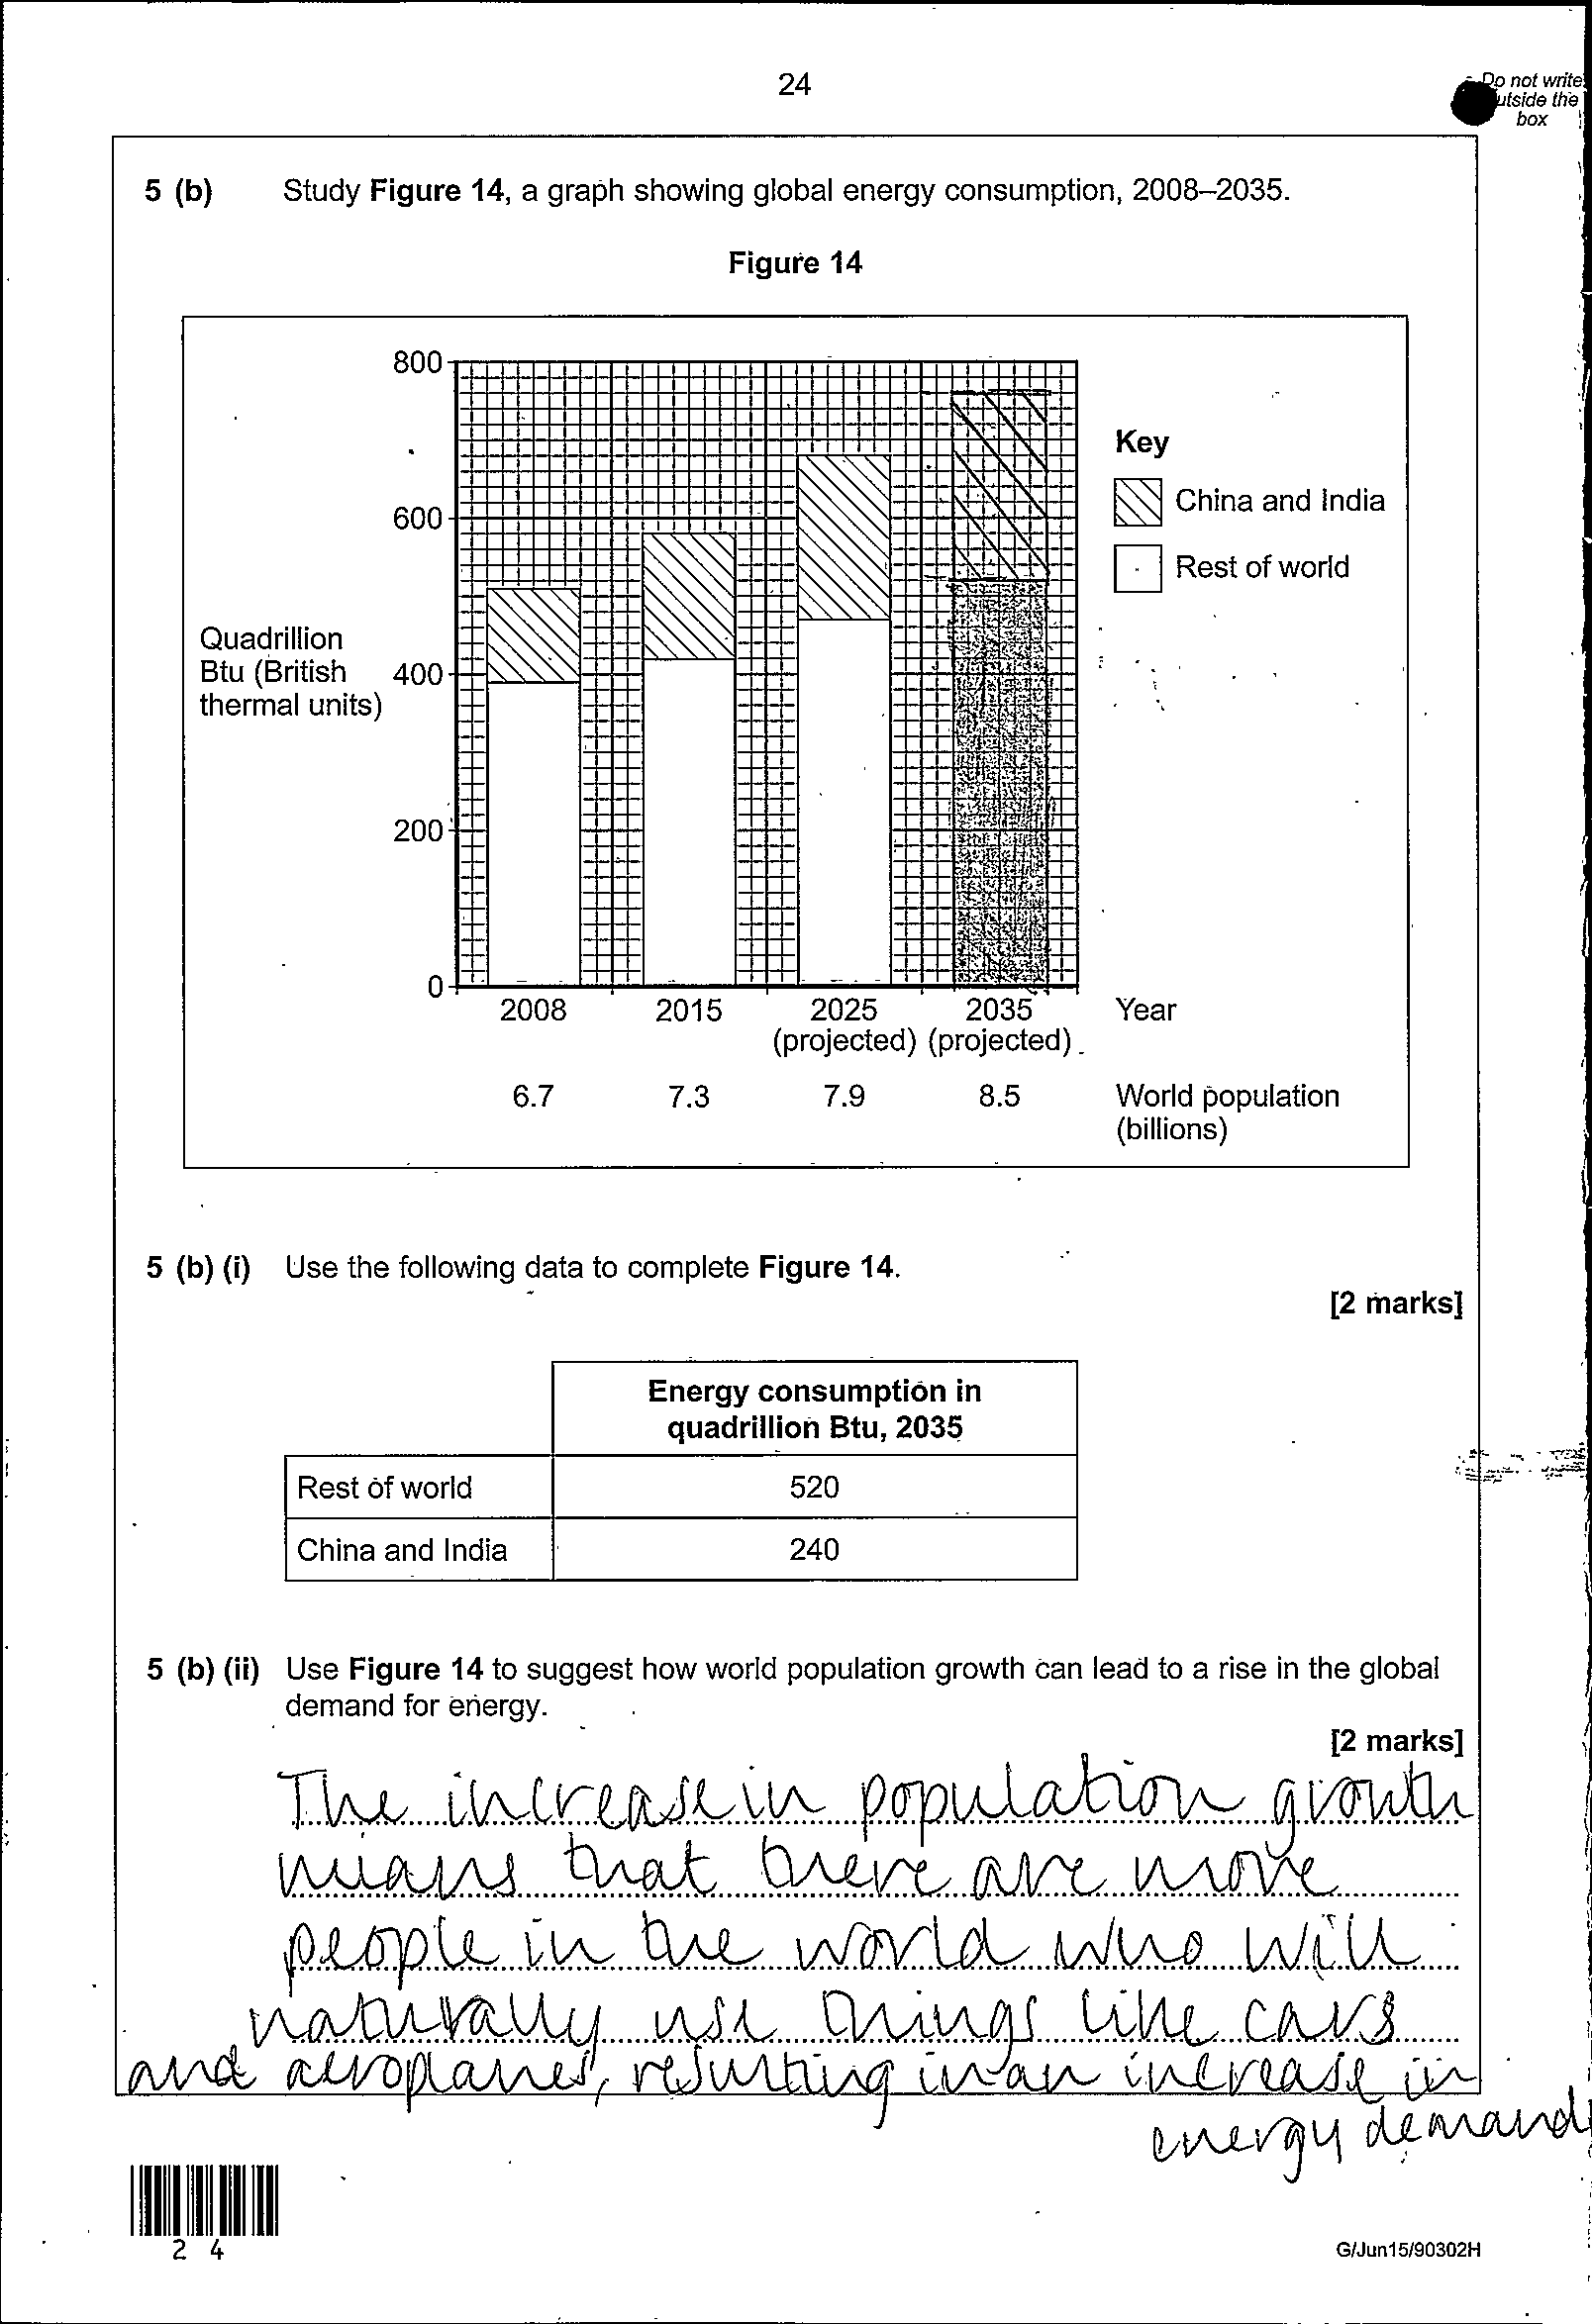 24
Do not write
utside the
box
5 (b) Study Figure 14, a graph showing global energy consumption, 2008–2035.
Figure 14
800
600
400
200
0
Quadrillion
Btu (British
thermal units)
Key
China and India
Rest of world
2008 2015 2025 2035 Year
(projected) (projected)
6.7 7.3 7.9 8.5 World population
(billions)
5 (b) (i) Use the following data to complete Figure 14.
[2 marks]
Energy consumption in
quadrillion Btu, 2035
Rest of world 520
China and India 240
5 (b) (ii) Use Figure 14 to suggest how world population growth can lead to a rise in the global
demand for energy.
[2 marks]
The increase in population growth
means that there are more
people in the world who will
naturally use things like cars
and aeroplanes, resulting in an increase in
energy demand
2 4
G/Jun15/90302H